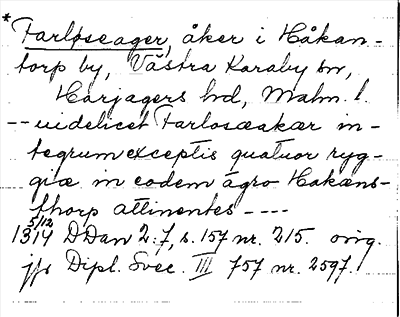 * Farløseager, åker i Håkan-
torp by, Västra Karaby sn,
Harjagers hd, Malm. l.
-- uidelicet Farlosæakær in-
tegrum exceptis quatuor ryg-
giæ in eodem agro Hakæns-
thorp attinentes ----
5/12
1314 DDan 2:7, s. 157 nr. 215. orig.
jfr Dipl. Svec. III 757 nr. 2597.